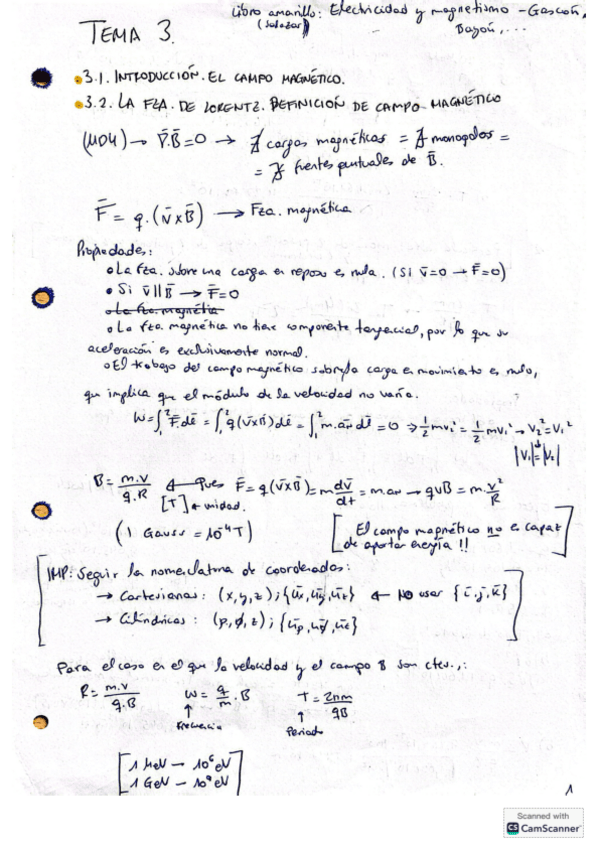 Libro amarillo: Electricidad y magnetismo - Gascón,
(Salazar) Bayón, ...
TEMA 3.
3.1. INTRODUCCIÓN. EL CAMPO MAGNÉTICO.
3.2. LA FZA. DE LORENTZ. DEFINICIÓN DE CAMPO MAGNÉTICO
(MDM) → ∇̄·B̄=0 → ∄ cargas magnéticas = ∄ monopolos =
= ∄ fuentes puntuales de B̄.
F̄ = q·(v̄ x B̄) → Fza. magnética
Propiedades:
• La fza. sobre una carga en reposo es nula. (Si v̄=0 → F̄=0)
• Si v̄ || B̄ → F̄=0
• La fza. magnética
• La fza. magnética no tiene componente tangencial, por lo que su
aceleración es exclusivamente normal.
• El trabajo del campo magnético sobre la carga en movimiento es nulo,
que implica que el módulo de la velocidad no varía.
W = ∫₁² F̄·dl̄ = ∫₁² q(v̄xB̄)·dl̄ = ∫₁² m·a̅n̅·dl̄ = 0 ⇒ ½mv₁² = ½mv₂² → v₂² = v₁²
|v₁| = |v₂|
B = m·v / q·R ← Pues F̄ = q(v̄xB̄) = m dv̄/dt = m·an → qvB = m·v²/R
[T] ← unidad.
(1 Gauss = 10⁻⁴ T)
[El campo magnético no es capaz
de aportar energía !!]
IMP: Seguir la nomenclatura de coordenadas:
→ Cartesianas: (x,y,z); {ūx, ūy, ūz} ← No usar {ī, j̄, k̄}
→ Cilíndricas: (ρ,ϕ,z); {ūρ, ūϕ, ūz}
Para el caso en el que la velocidad y el campo B son ctes.,:
R = m·v / q·B W = q/m · B T = 2πm / qB
↑ Frecuencia ↑ Periodo
[1 MeV → 10⁶ eV
1 GeV → 10⁹ eV]
1
Scanned with
CS CamScanner